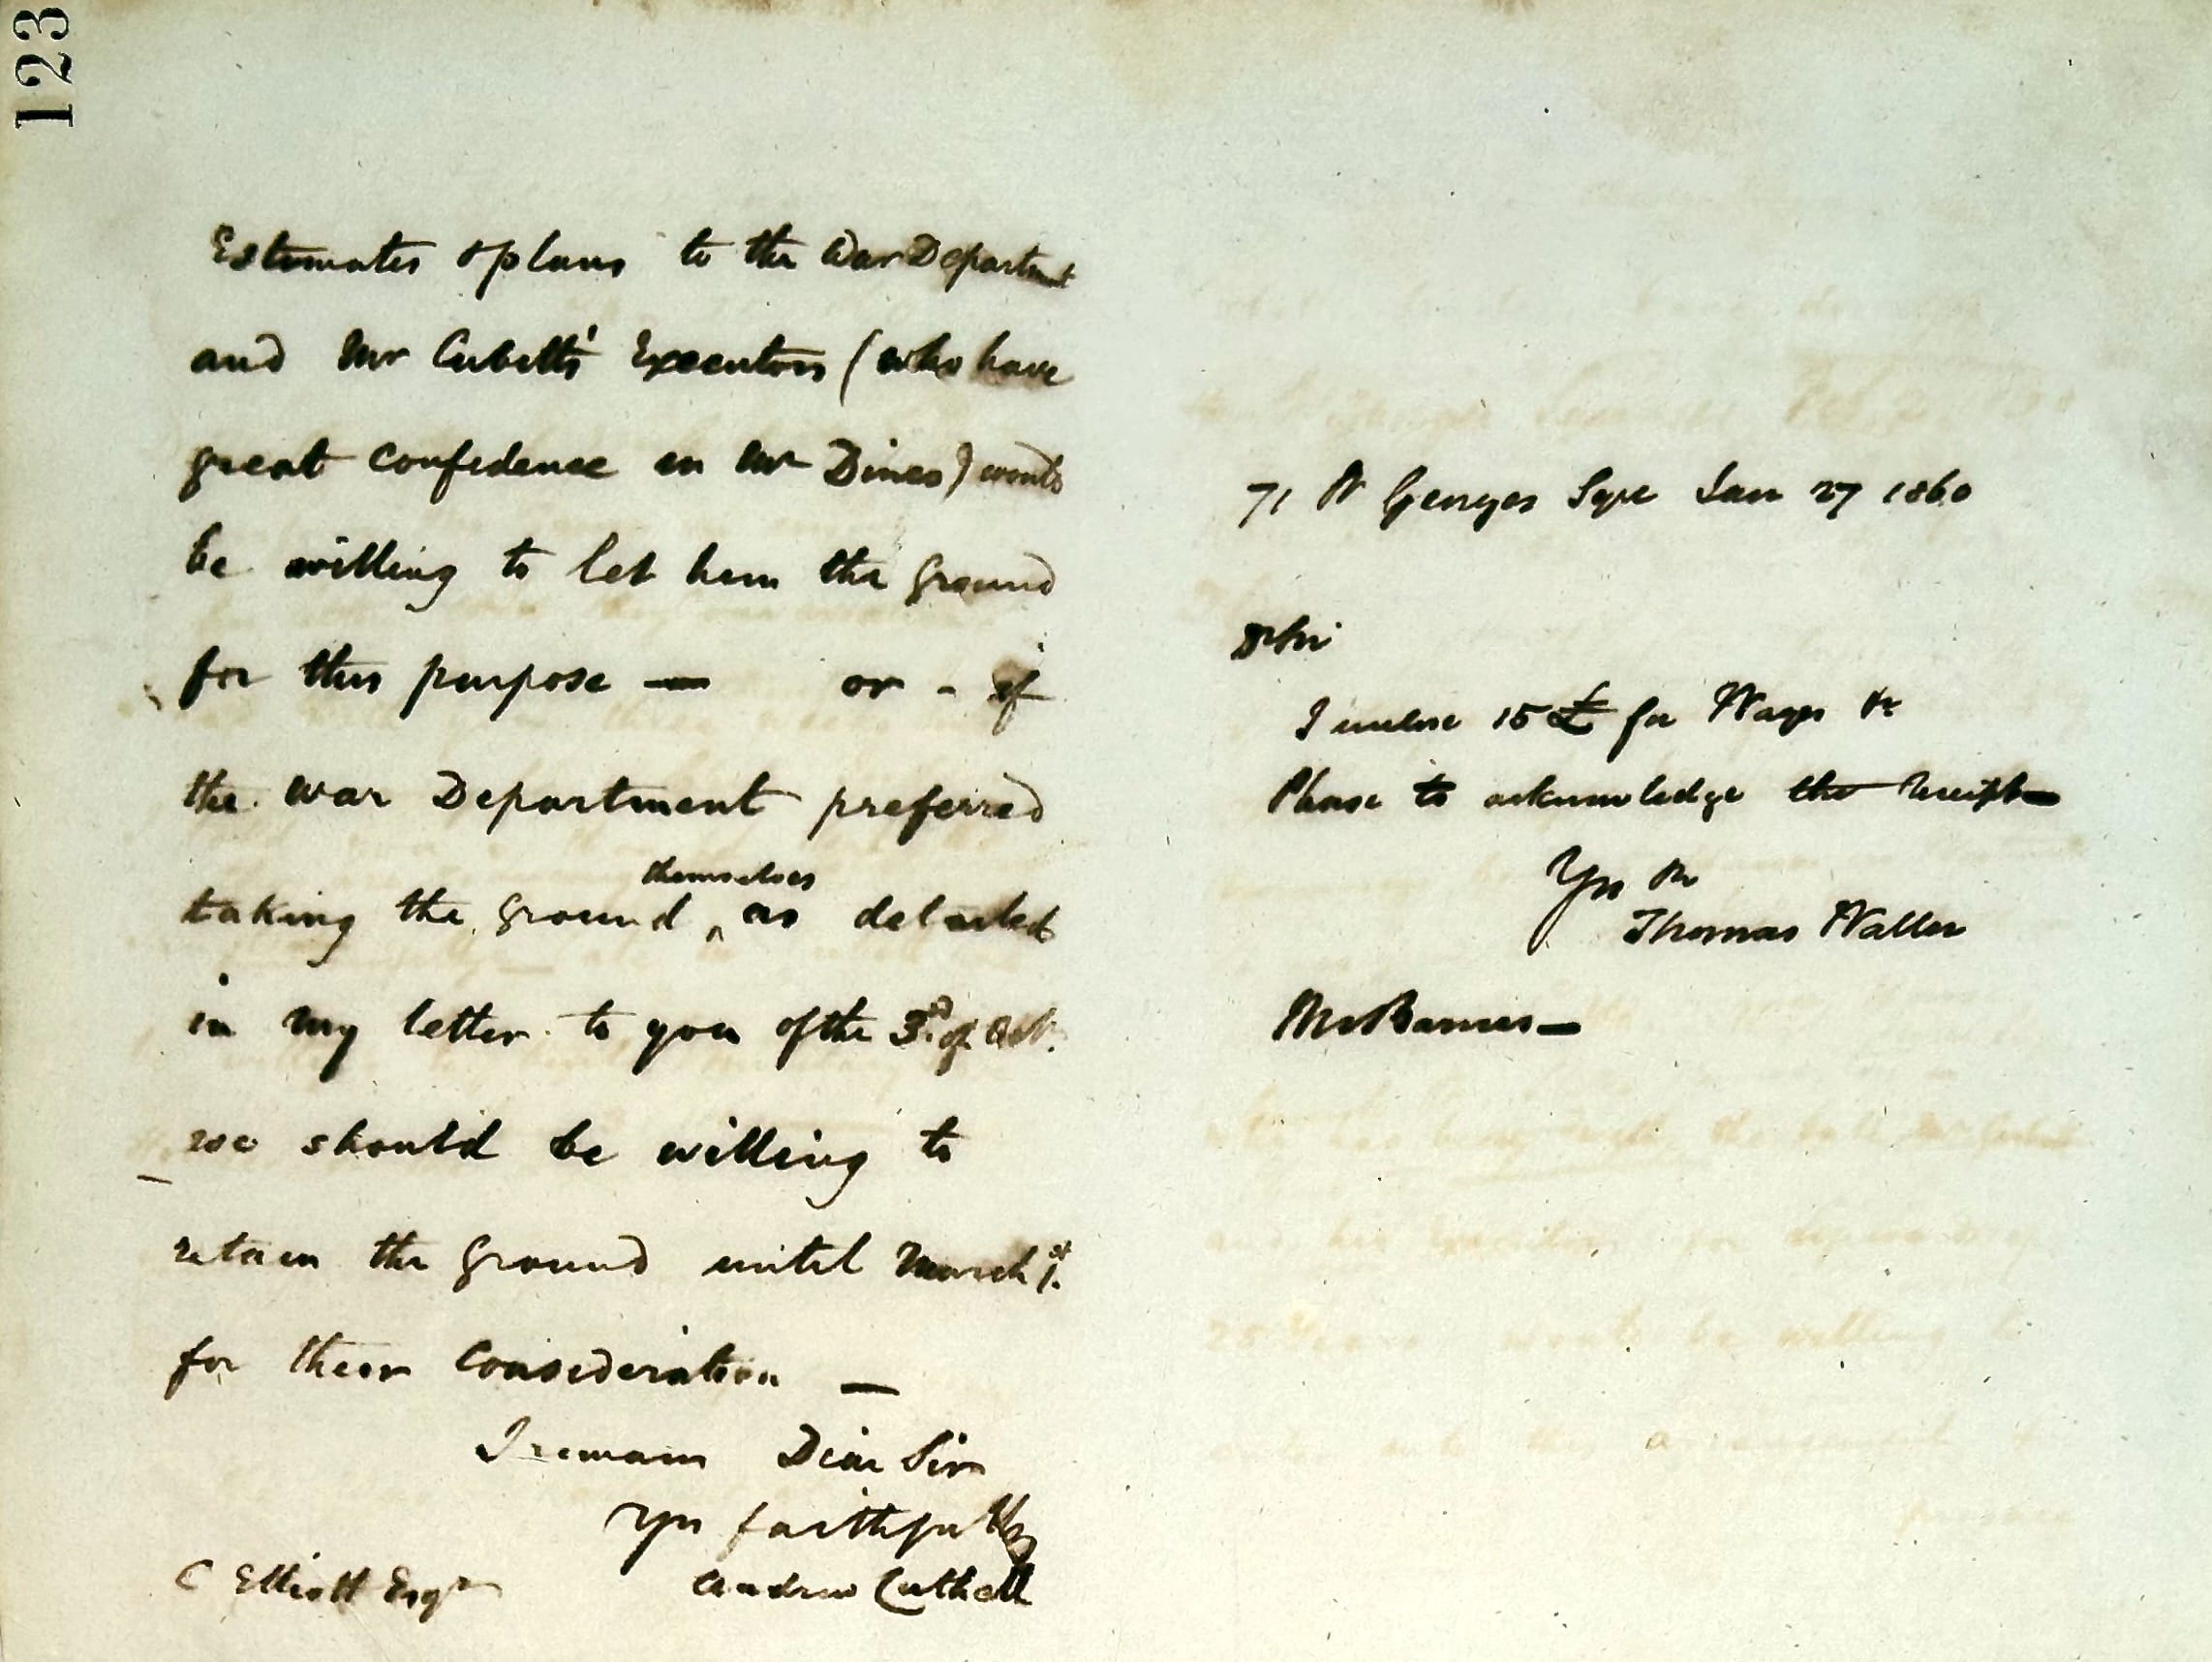 123
Estimates & plans to the War Department
and Mr Cubitts' Executors (who have
great confidence in Mr Dines) would
be willing to let him the ground
for this purpose — or - if
the War Department preferred
themselves
taking the ground, as detailed
in my letter to you of the 3rd of Oct.
we should be willing to
retain the ground until March 1st.
for their Consideration —
I remain Dear Sir
Yrs faithfully
Andrew Cuthell
C Elliott Esqr
71 St Georges Sqre Jan 27 1860
Dr Sir
I enclose 15£ for Wages &c
Please to acknowledge the receipt—
Yrs
Thomas Waller
Mr Barnes—